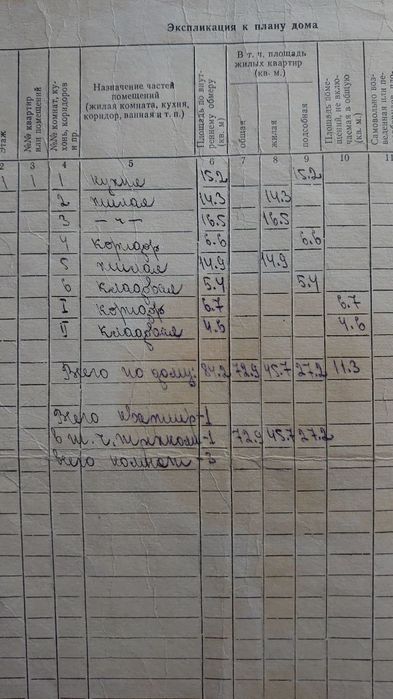 Экспликация к плану дома
Этаж
№№ квартир или помещений
№№ комнат, кухонь, коридоров и пр.
Назначение частей помещений (жилая комната, кухня, коридор, ванная и т. п.)
Площадь по внутреннему обмеру (кв. м.)
В т. ч. площадь жилых квартир (кв. м.)
общая
жилая
подсобная
Площадь помещений, не включаемая в общую (кв. м.)
Самовольно возведенная или пе-
2 3 4 5 6 7 8 9 10 11
1 1 1 кухня 15.2 15.2
2 жилая 14.3 14.3
3 -"- 16.5 16.5
4 коридор 6.6 6.6
5 жилая 14.9 14.9
6 кладовая 5.4 5.4
I коридор 6.7 6.7
II кладовая 4.6 4.6
Всего по дому: 84.2 72.9 45.7 27.2 11.3
Всего квартир-1
в т.ч. -1 72.9 45.7 27.2
всего комнат -3